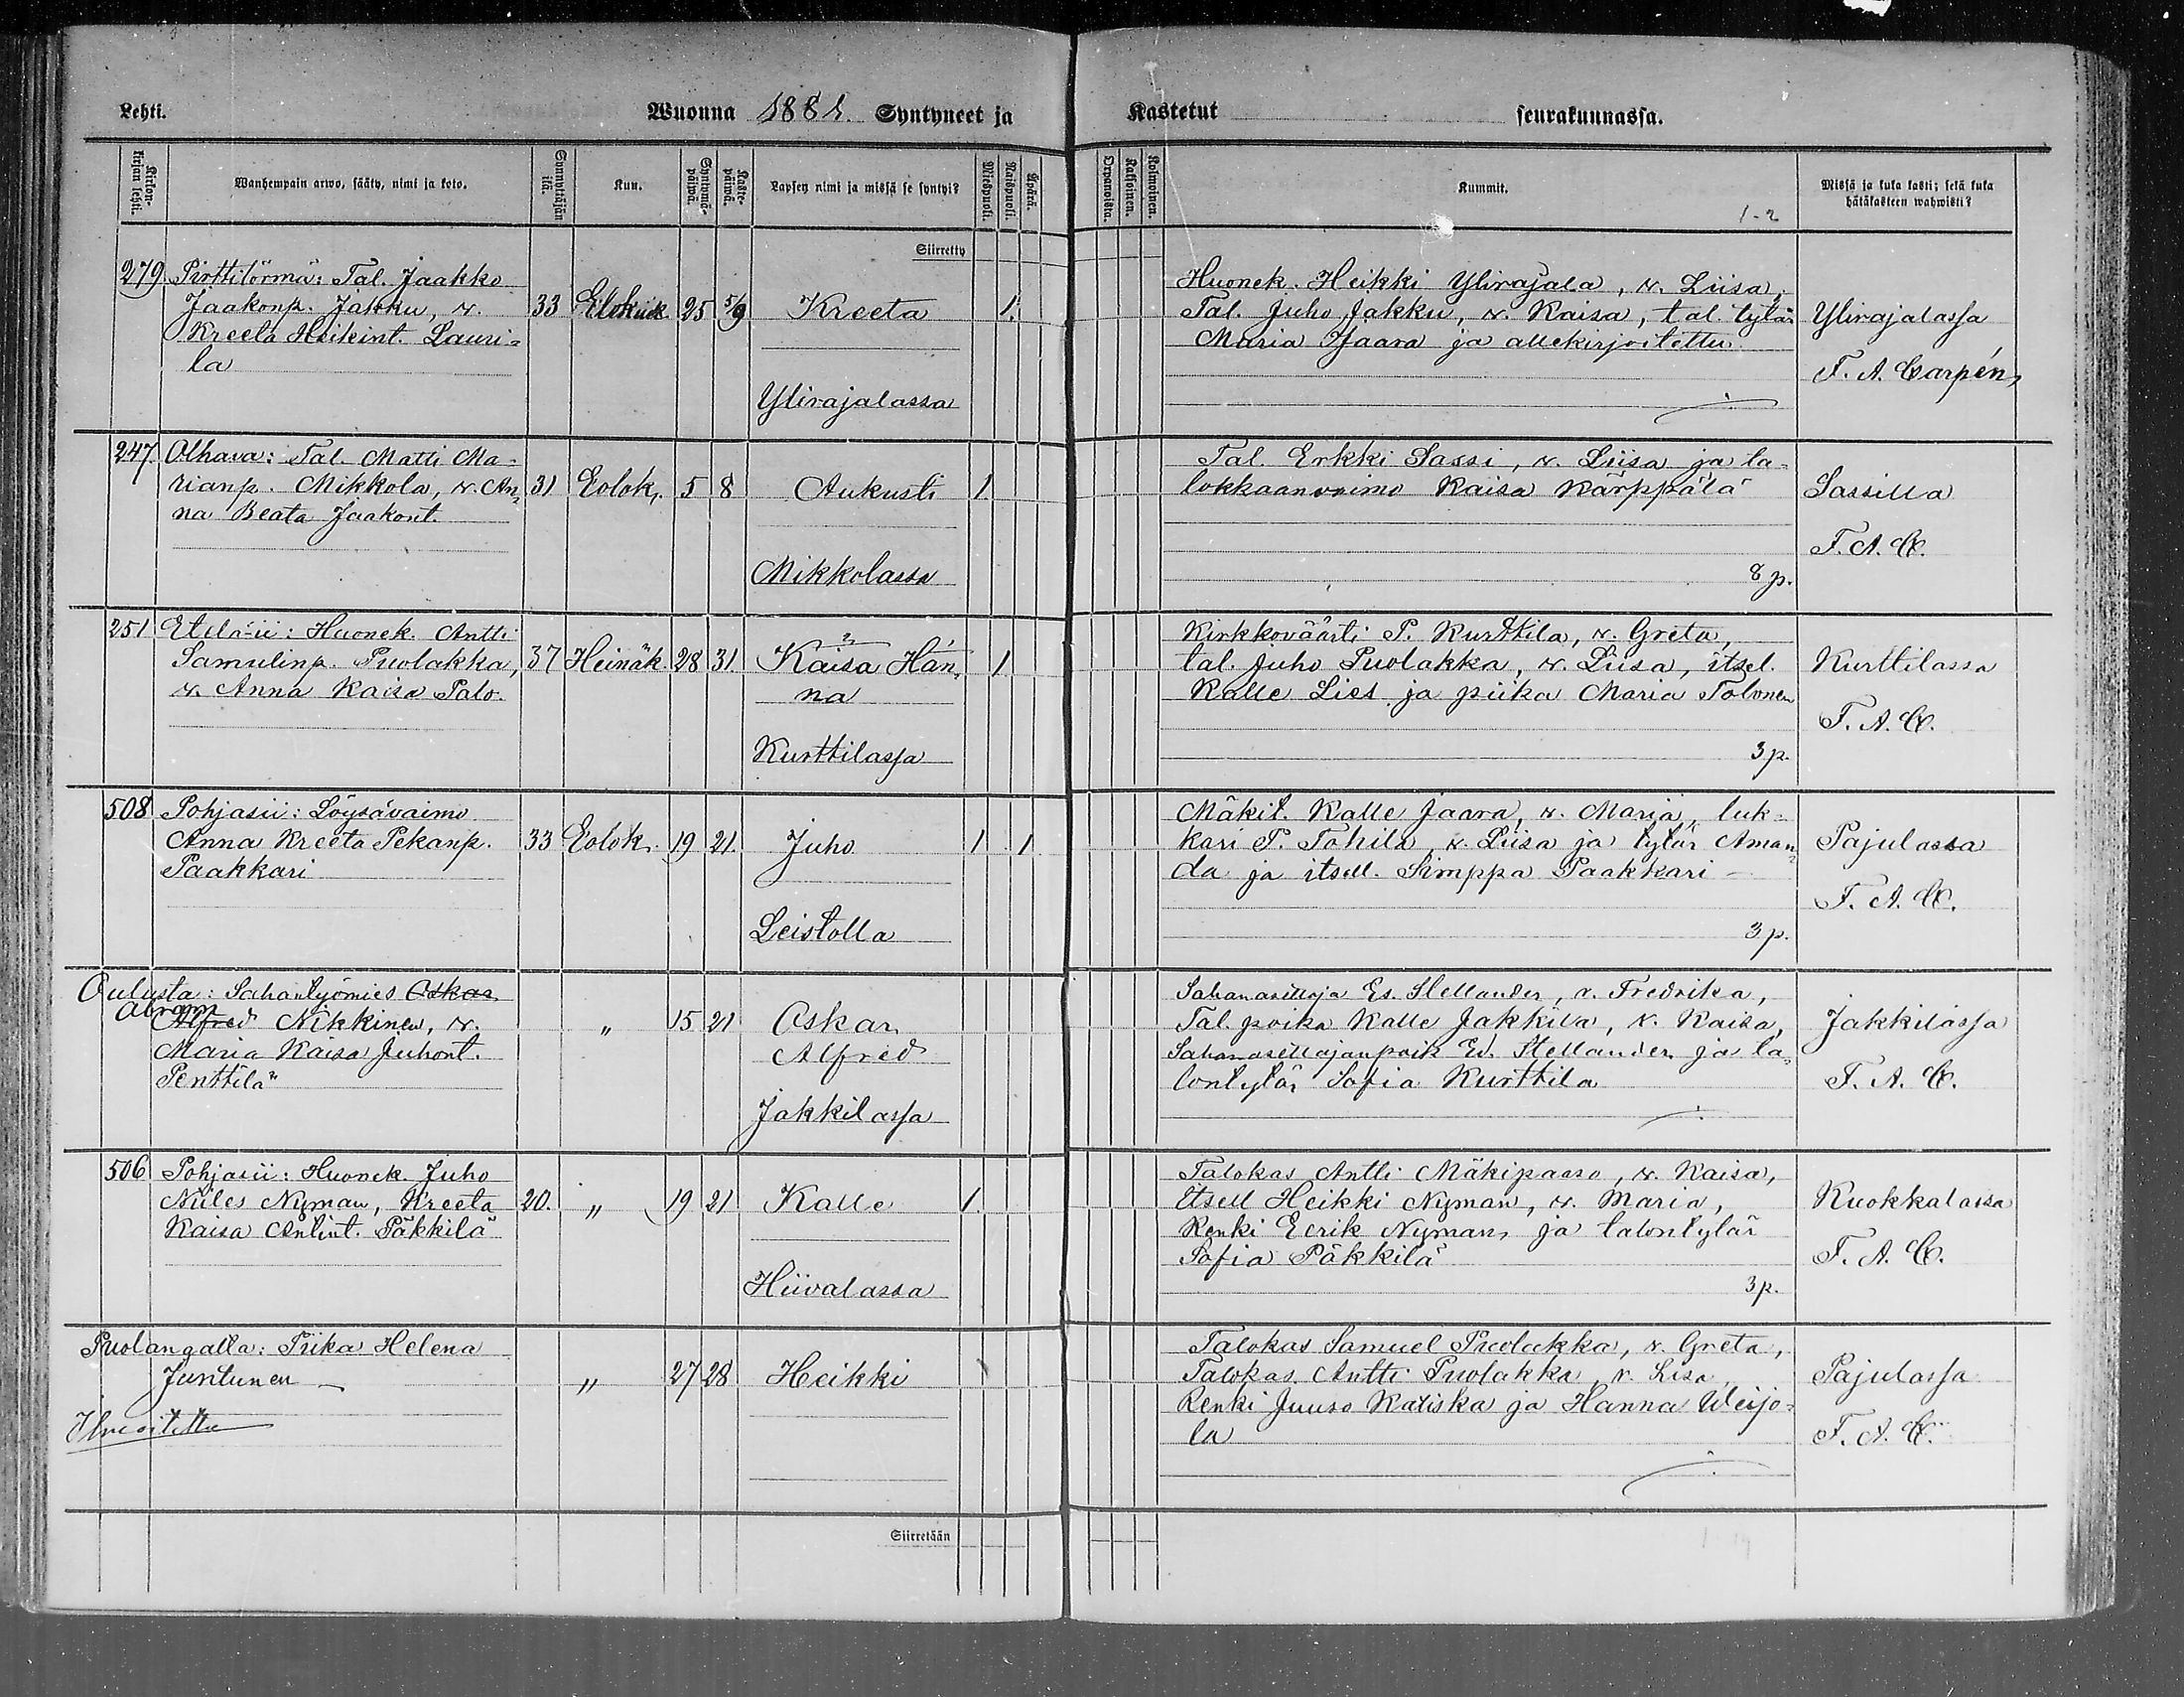 Lehti.
Wuonna 1881. Syntyneet ja
Kastetut seurakunnassa.
Kirkonkirjan lehti.
Wanhempain arwo, sääty, nimi ja koto.
Synnyttäjän ikä.
Kuu.
Syntymäpäiwä.
Kastepäiwä.
Lapsen nimi ja missä se syntyi?
Mieskpuoli.
Naispuoli.
Äpärä.
Orpanoista.
Kaksoinen.
Kolmoinen.
Kummit.
1-2
Missä ja kuka kasti; sekä kuka
hätäkasteen wahwisti?
Siirretty
279. Pirttitörmä: Tal. Jaakko
Jaakonp. Jakku, v.
Kreeta Heikint. Lauri=
la
33 Elokuu 25 5/9 Kreeta 1.
Ylirajalassa
Huonek. Heikki Ylirajala, v. Liisa,
Tal. Juho Jakku, v. Kaisa, tal. tytär
Maria Jaara ja allekirjoitettu
Ylirajalassa
F. A. Carpén,
247. Olhava: Tal. Matti Ma=
rianp. Mikkola, v. An=
na Beata Jaakont.
31 Eolok. 5 8 Aukusti 1
Mikkolassa
Tal. Erkki Sassi, v. Liisa ja ta=
lokkaanvaimo Kaisa Kärppälä
8 p.
Sassilla
F. A. C.
251 Etelä-ii: Huonek. Antti
Samulinp. Puolakka,
v. Anna Kaisa Palo.
37 Heinäk. 28 31. Kaisa Han=
na
1
Kurttilassa
Kirkkoväärti P. Kurttila, v. Greta,
tal. Juho Puolakka, v. Liisa, itsel.
Kalle Lies ja piika Maria Tolonen
3 p.
Kurttilassa
F. A. C.
508 Pohjasii: Löysävaimo
Anna Kreeta Pekanp.
Paakkari
33 Eolok. 19 21. Juho 1 1
Leistolla
Mäkit. Kalle Jaara, v. Maria, luk=
kari P. Tahila, v. Liisa ja tytär Aman=
da ja itsell. Simppa Paakkari
3 p.
Pajulassa
F. A. C.
Oulusta: Sahantyömies Oskar
Abram
Alfred Nikkinen, v.
Maria Kaisa Juhont.
Penttilä
„ 15 21 Oskar
Alfred
Jakkilassa
Sahanasettaja Es. Stellander, v. Fredrika,
Tal. poika Kalle Jakkila, v. Kaisa,
Sahanasettajanpoik Ed. Stellander ja ta=
lontytär Sofia Kurttila
Jakkilassa
F. A. C.
506 Pohjasii: Huonek. Juho
Niiles Nyman, Kreeta
Kaisa Antint. Päkkilä
20. „ 19 21 Kalle 1.
Hiivalassa
Talokas Antti Mäkipaaso, v. Kaisa,
Itsell Heikki Nyman, v. Maria,
Renki Eerik Nyman, ja talontytär
Sofia Päkkilä
3 p.
Kuokkalassa
F. A. C.
Puolangalla: Piika Helena
Juntunen
Ilmoitettu
„ 27 28 Heikki
Talokas Samuel Puolakka, v. Greta,
Talokas Antti Puolakka, v. Lisa,
Renki Juuso Katiska ja Hanna Weijo=
la
Pajulassa
F. A. C.
Siirretään